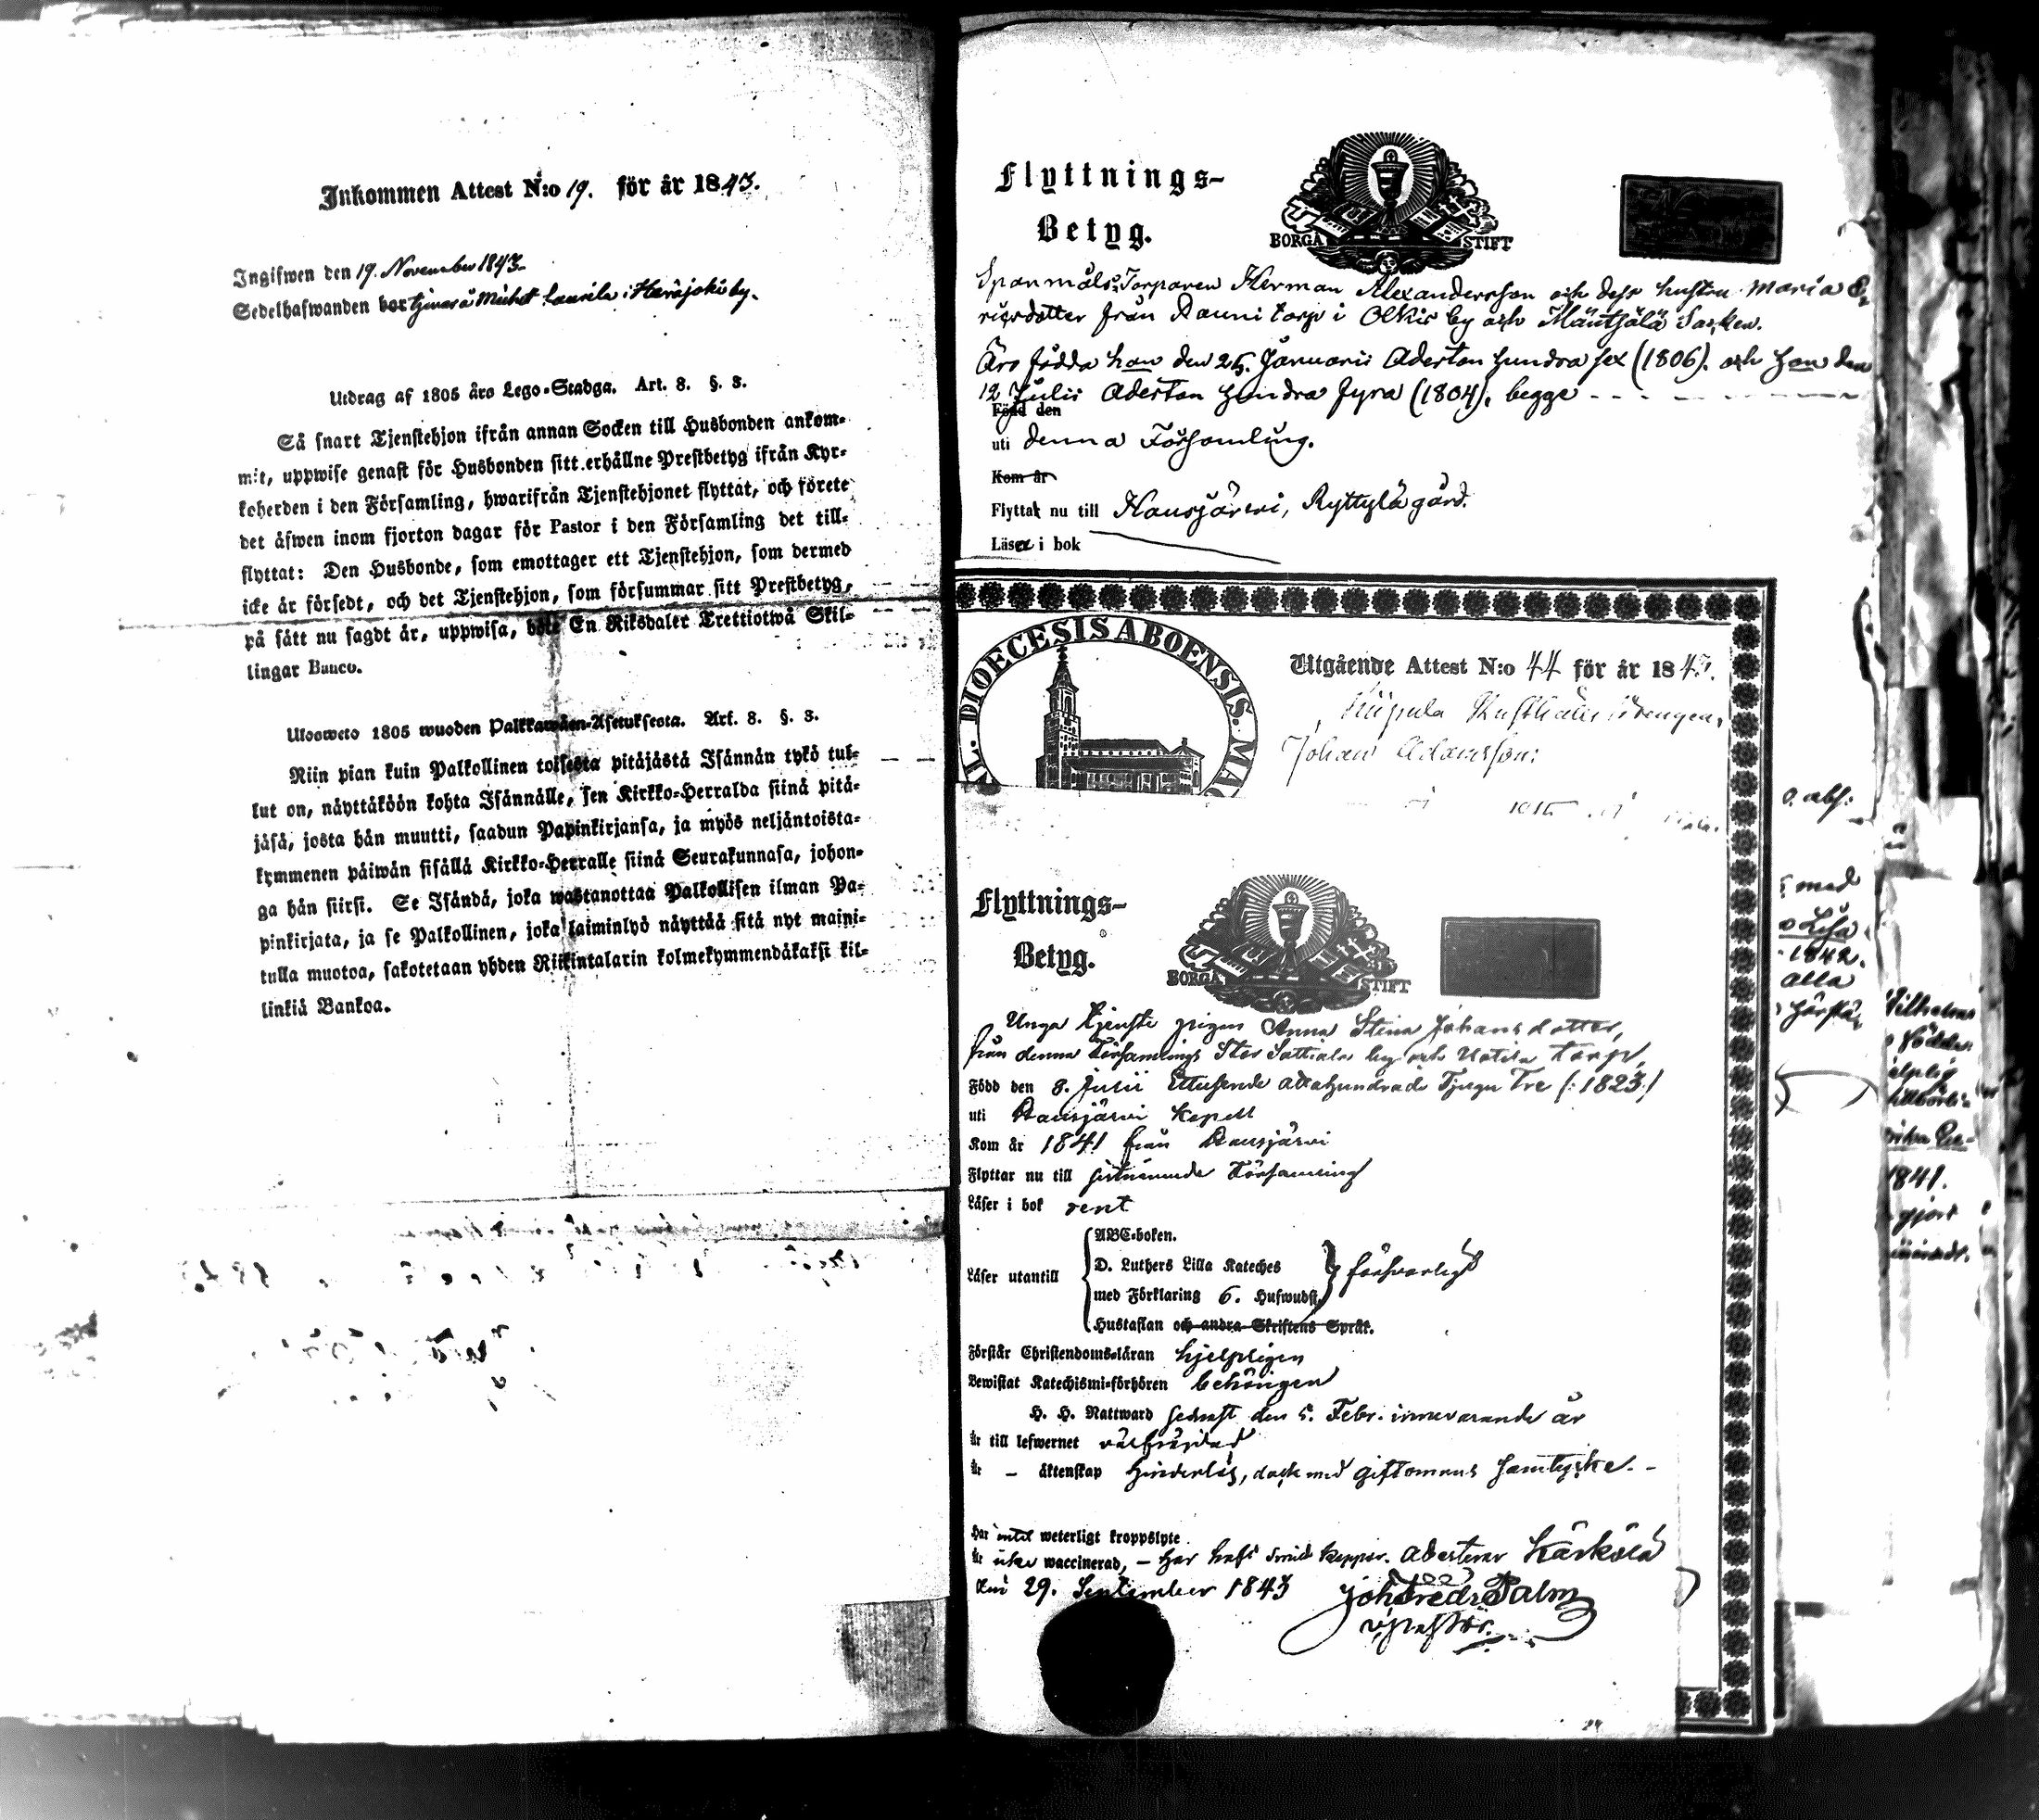 Inkommen Attest N:o 19. för år 1843.
Ingifwen den 19. November 1843.
Sedelhafwanden bor tjenar å Michel Laurila i Herajoki by.
Utdrag af 1805 års Lego-Stadga. Art. 8. §. 3.
Så snart Tjenstehjon ifrån annan Socken till Husbonden ankom-
mit, uppwise genast för Husbonden sitt erhållne Prestbetyg ifrån Kyr-
koherden i den Församling, hwarifrån Tjenstehjonet flyttat, och förete
det äfwen inom fjorton dagar för Pastor i den Församling det till-
flyttat: Den Husbonde, som emottager ett Tjenstehjon, som dermed
icke är försedt, och det Tjenstehjon, som försummar sitt Prestbetyg,
på sätt nu sagdt är, uppwisa, böte En Riksdaler Trettiotwå Skil-
lingar Banco.
Ulosweto 1805 wuoden Palkkawäen-Asetuksesta. Art. 8. §. 3.
Niin pian kuin Palkollinen toisesta pitäjästä Isännän tykö tul-
lut on, näyttäköön kohta Isännälle, sen Kirkko-Herralda siinä pitä-
jäsä, josta hän muutti, saadun Papinkirjansa, ja myös neljäntoista-
kymmenen päiwän sisällä Kirkko-Herralle siinä Seurakunnasa, johon-
ga hän siirsi. Se Isändä, joka wastanottaa Palkollisen ilman Pa-
pinkirjata, ja se Palkollinen, joka laiminlyö näyttää sitä nyt maini-
tulla muotoa, sakotetaan yhden Riikintalarin kolmekymmendäkaksi kil-
linkiä Bankoa.
Flyttnings-
Betyg.
BORGÅ STIFT
Spanmåls Torparen Herman Alexandersson och dess hustru Maria E-
ricsdotter från Rauni torp i Olkis by och Mäntsälä Socken.
Äro födda han den 25. Januarii Aderton hundra sex (1806). och hon den
12 Julii Aderton hundra fyra (1804), begge
Född den
uti denna Församling.
Kom år
Flyttat nu till Hausjärwi, Ryttylä gård.
Läser i bok
AL. DIOECESIS ABOENSIS. MA
Utgående Attest N:o 44 för år 1843.
Johan Adamsson:
Flyttnings-
Betyg.
BORGÅ STIFT
Unga tjenste pigan Anna Stina Johansdotter,
från denna Församlings Stor Sattiala by och Uotila torp,
Född den 8. Julii Ettusende Åttahundrade Tjugu Tre (:1823:)
uti Hausjärwi Kapell
Kom år 1841 från Hausjärwi
Flyttar nu till sistnämnde Församling
Läser i bok rent
ABC-boken.
D. Luthers Lilla Kateches
Läser utantill försvarligt
med Förklaring 6. Hufwudst.
Hustaflan och andra Skriftens Språk.
Förstår Christendoms-läran hjelpligen
Bewistat Katechismi-förhören behörigen
H. H. Nattward sednast den 5. Febr. innevarande år
Är till lefwernet välfrejdad
Är – äktenskap hinderlös, dock med giftomans samtycke. –
Har intet weterligt kroppslyte
Är icke waccinerad, – har haft Smitt koppor. Attesterar Kärkölä
den 29. September 1843 Joh: Fredr: Palm
v. pastor.
o abs:
med
1842.
alla
Wilhelms
födde
1841.
gjort